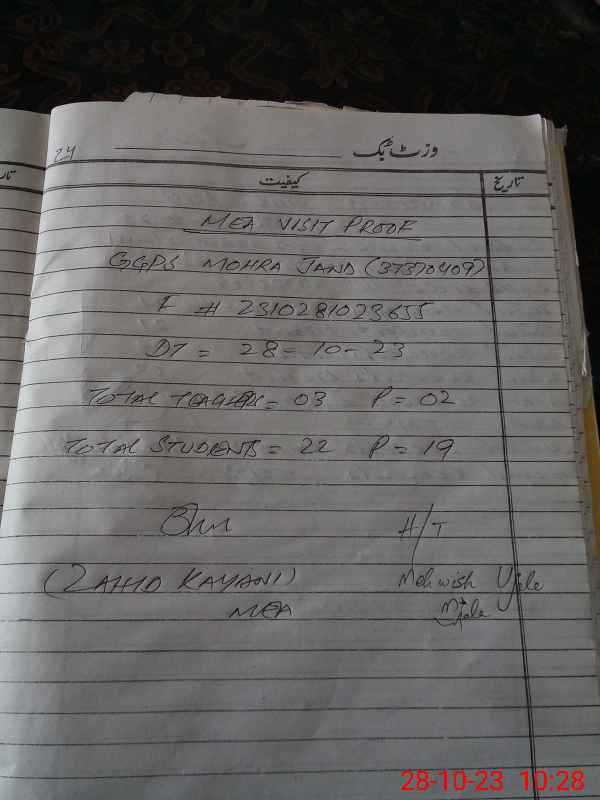 24
وزٹ بُک
کیفیت
تاریخ
MEA VISIT PROOF
GGPS MOHRA JAND (37370409)
F # 2310281023655
DT = 28-10-23
TOTAL TEACHER = 03 P = 02
TOTAL STUDENTS = 22 P = 19
H/T
(ZAHID KAYANI)
Mehwish
MEA
28-10-23 10:28